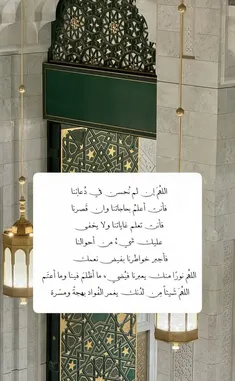 اللهم إن لم نُحسن في دُعائنا
فأنت أعلمُ بحاجاتنا وإن قَصرنا
فأنت تعلم غاياتنا ولا يخفى
عليك شيءٌ من أحوالنا
فأجبر خواطرنا بفيض نعمك
اللهم نورًا منك يعبرنا فيُضيء ما أظلمَ فينا وما أعتَم
اللهم شيئاً مِن لدُنك يغمر الفؤاد بهجةً ومسرة